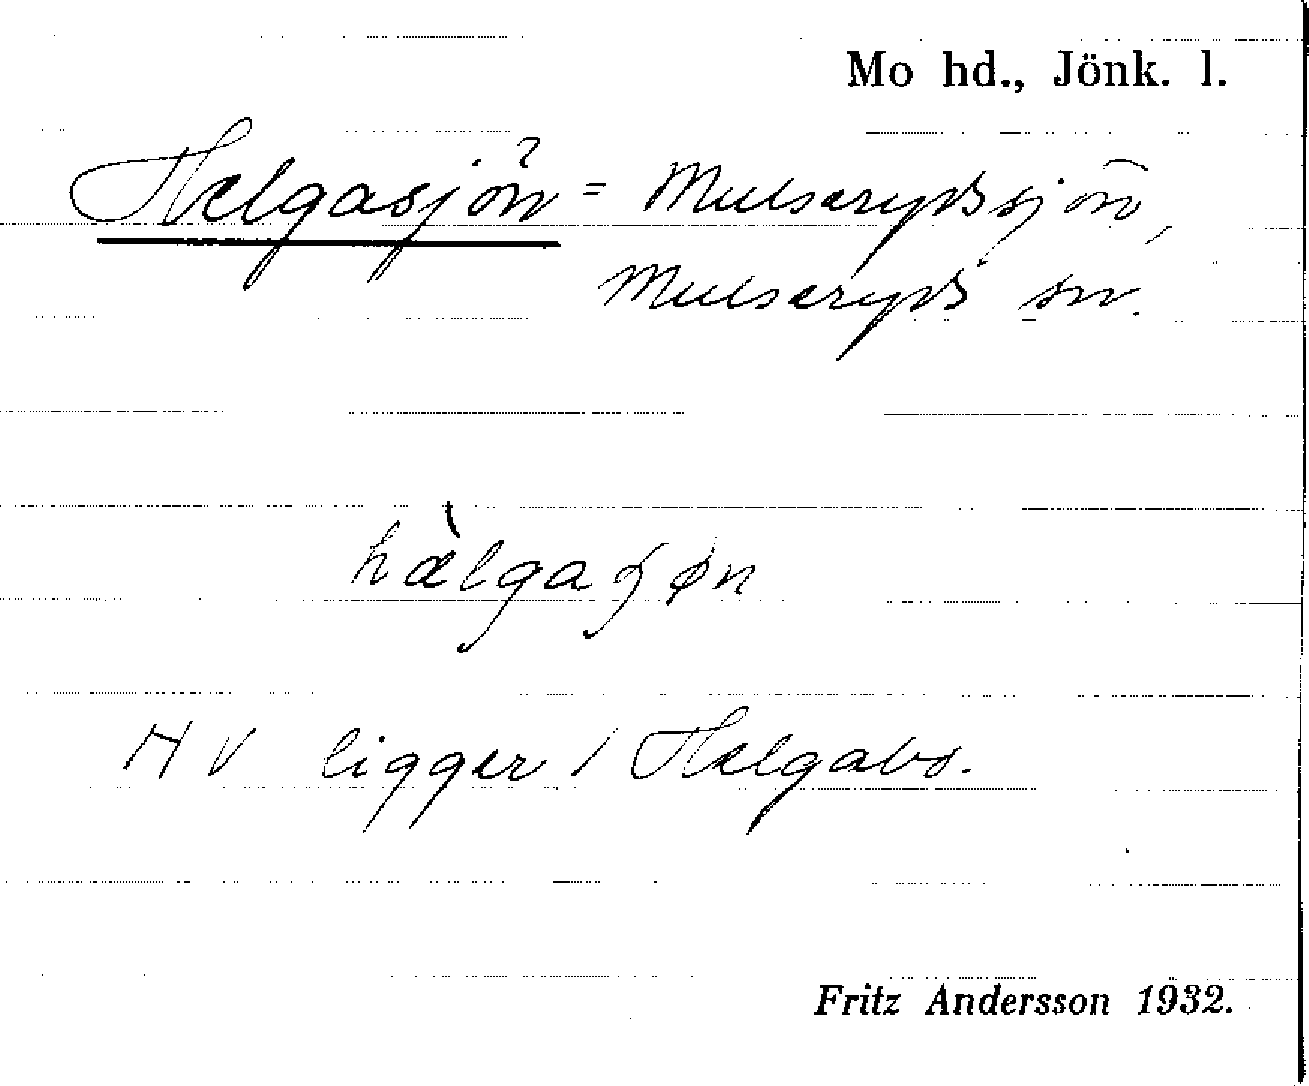 Mo hd., Jönk. l.
Helgasjön = Mulserydssjön,
Mulseryds sn.
hælgaʃøn
H V ligger / Helgabo.
Fritz Andersson 1932.